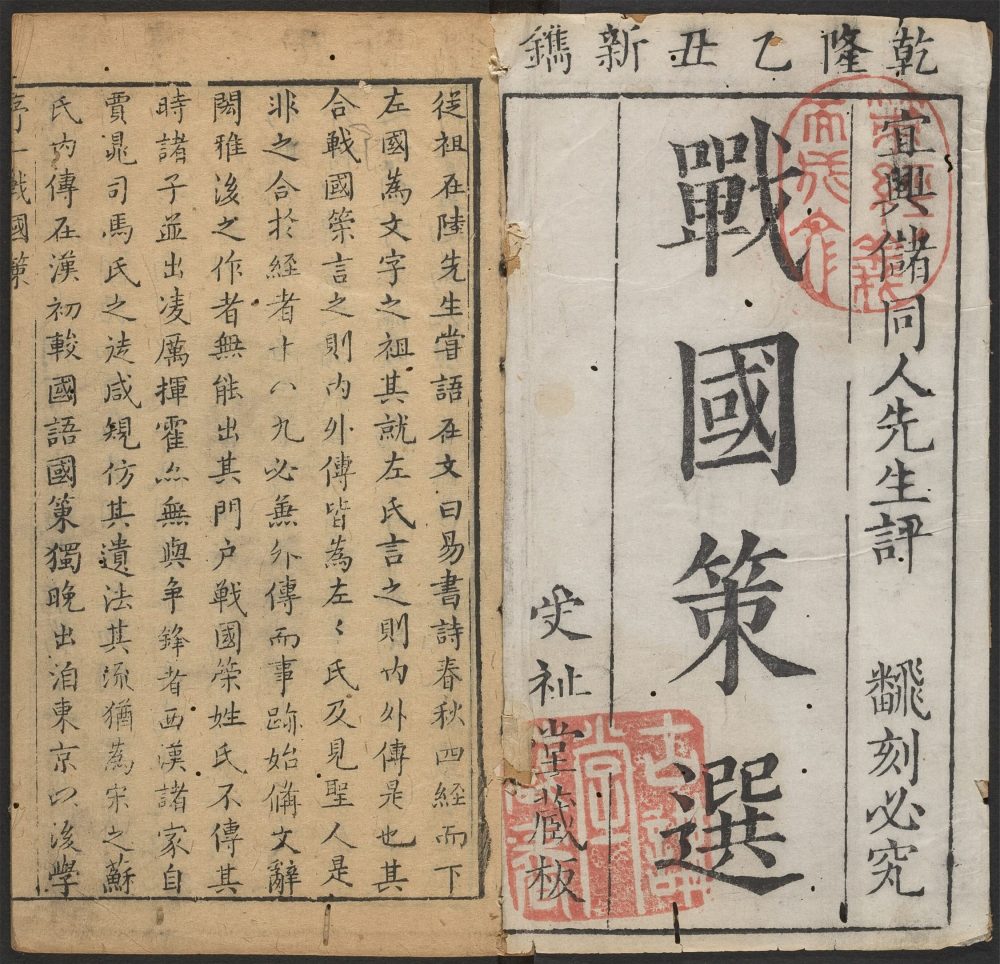 乾隆乙丑新鐫
宜興儲同人先生評　飜刻必究
戰國策選
受祉堂藏板
從祖在陸先生嘗語在文曰易書詩春秋四經而下
左國為文字之祖其就左氏言之則內外傳是也其
合戰國策言之則內外傳皆為左〻氏及見聖人是
非之合於經者十八九必兼外傳而事跡始備文辭
閎雅後之作者無能出其門户戰國策姓氏不傳其
時諸子並出凌厲揮霍然無與爭鋒者西漢諸家自
賈晁司馬氏之徒咸規仿其遺法其流猶為宋之蘇
氏內傳在漢初較國語國策獨晚出洎東京以後學
序一戰國策